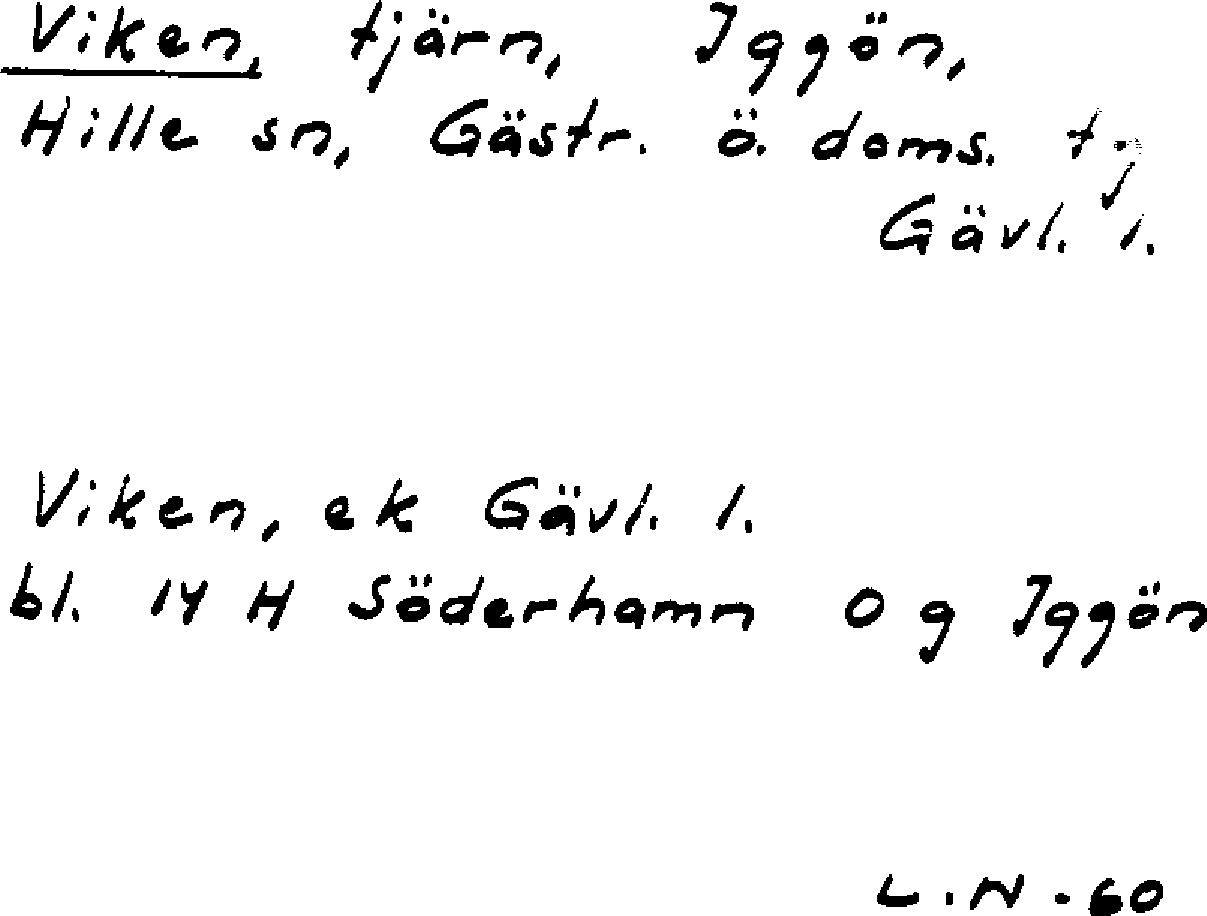 Viken, tjärn, Iggön,
Hille sn, Gästr. ö. doms. tj
Gävl. l.
Viken, ek Gävl. l.
bl. 14 H Söderhamn 0 g Iggön
L.N.-60